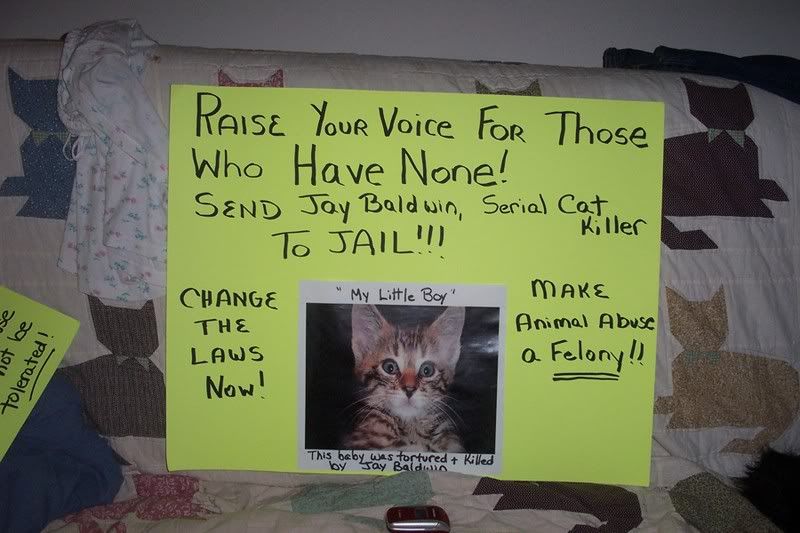 RAISE YOUR VOICE FOR THOSE
WHO HAVE NONE!
SEND Jay Baldwin, Serial Cat
Killer
To JAIL!!!
CHANGE
THE
LAWS
Now!
"My Little Boy"
This baby was tortured + Killed
by Jay Baldwin
MAKE
Animal Abuse
a Felony!!
not be
tolerated!